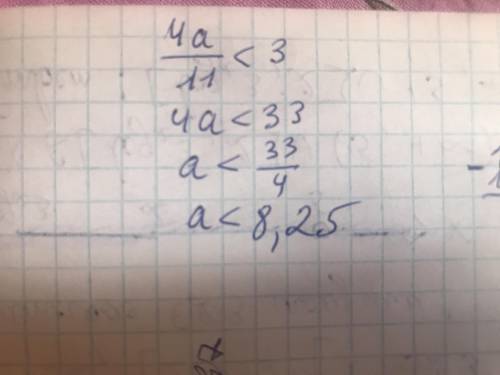 4a/11 < 3
4a < 33
a < 33/4
a < 8,25